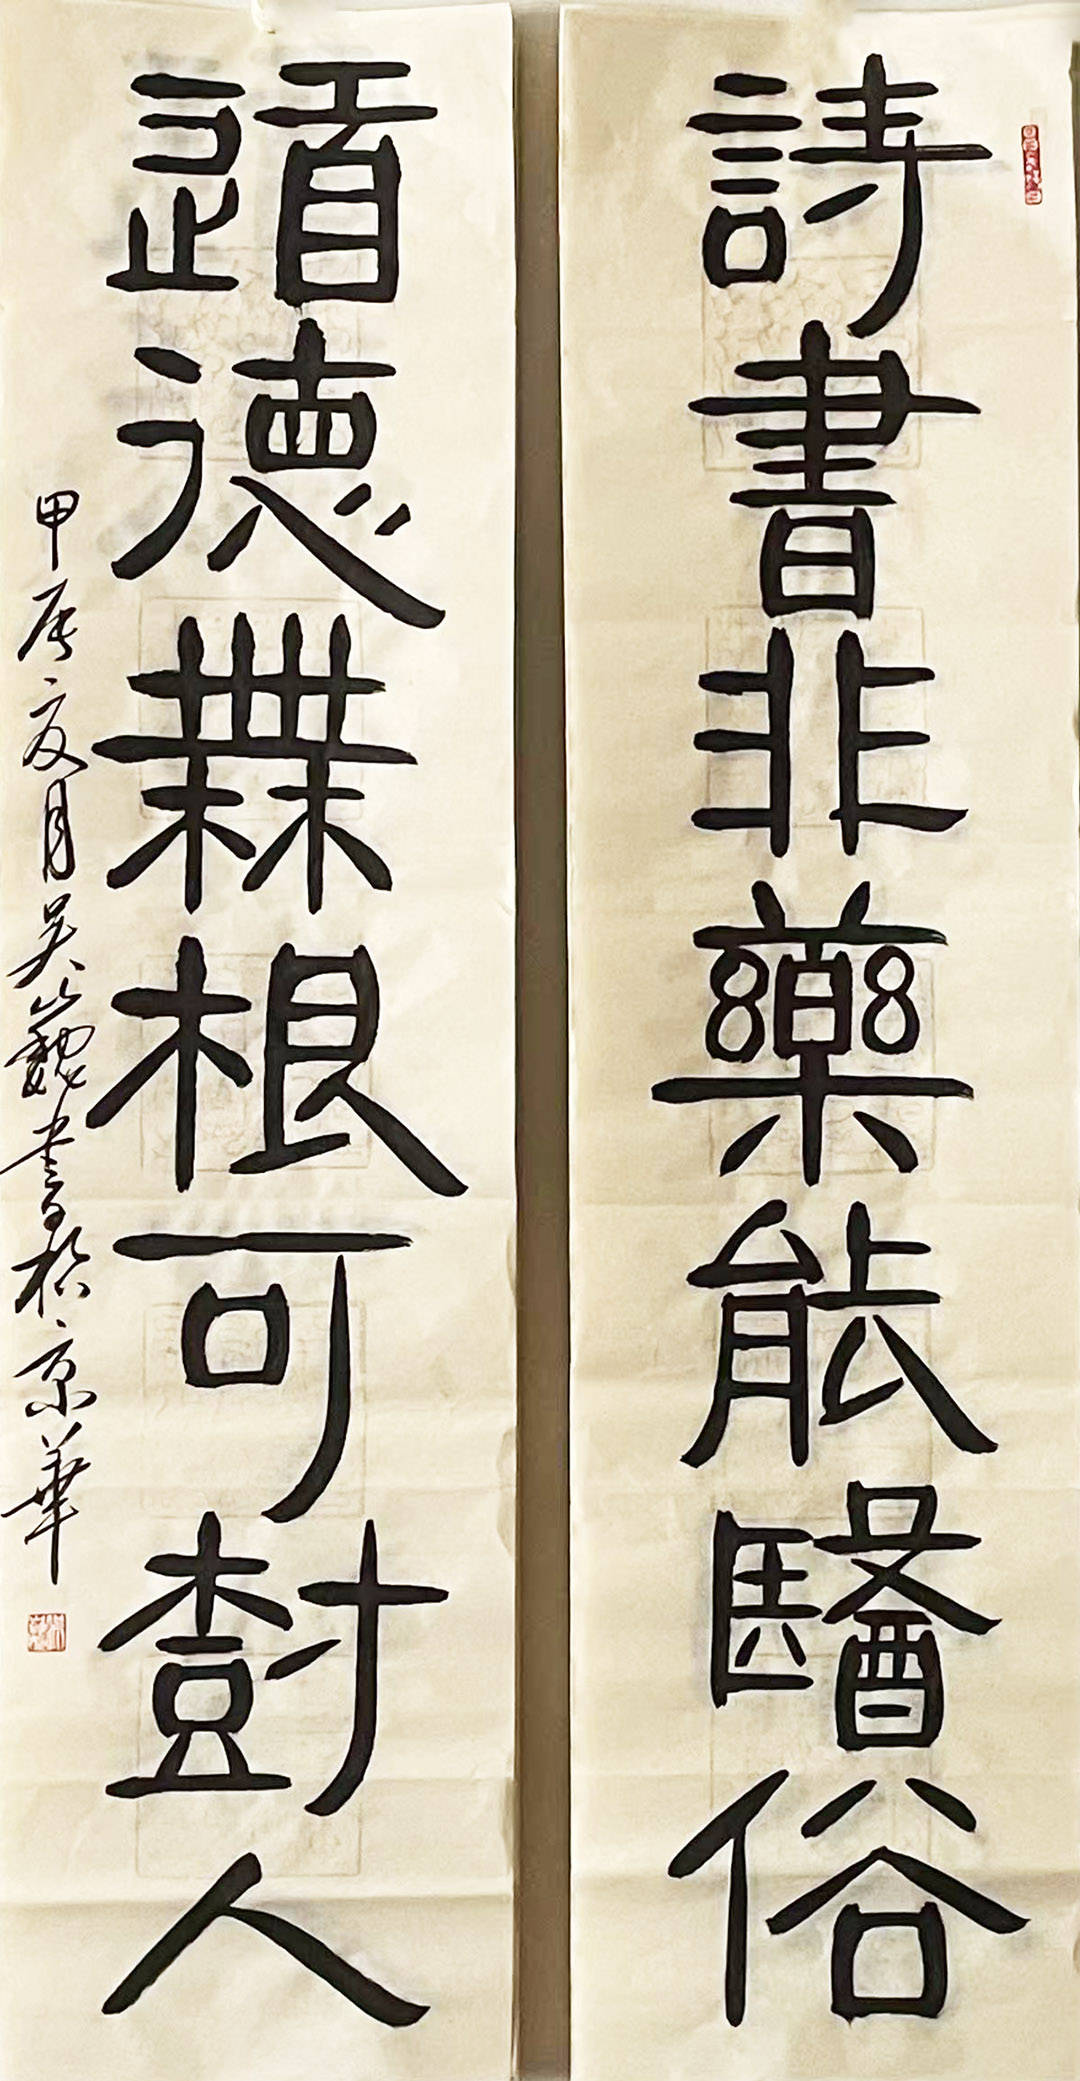 詩書非藥能醫俗
道德無根可樹人
甲辰夏月吴巍書於京華